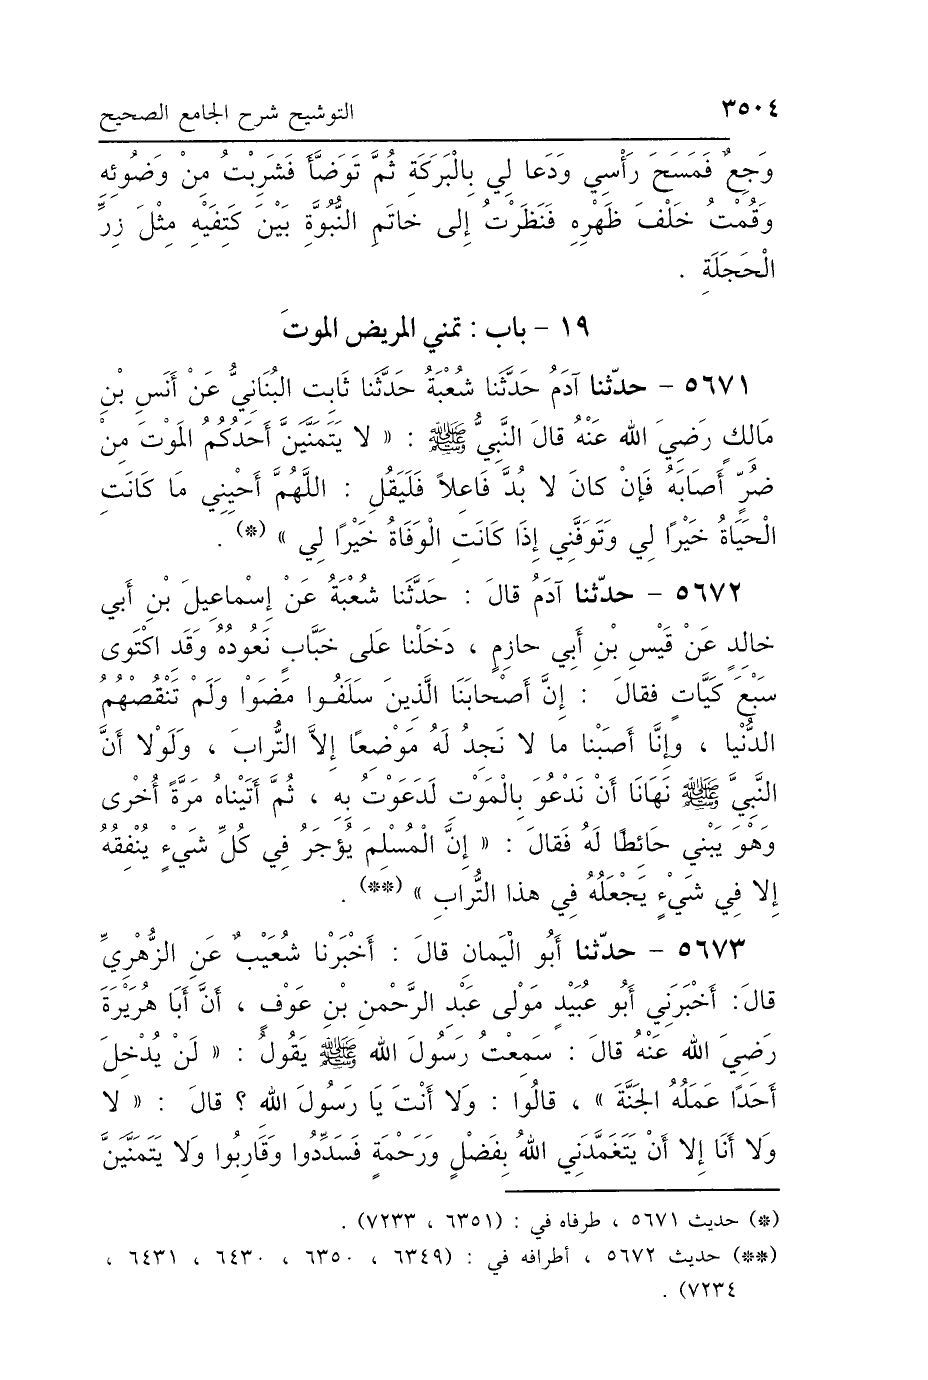 ٣٥٠٤ التوشيح شرح الجامع الصحيح
وَجِعٌ فَمَسَحَ رَأْسِي وَدَعَا لِي بِالْبَرَكَةِ ثُمَّ تَوَضَّأَ فَشَرِبْتُ مِنْ وَضُوئِهِ
وَقُمْتُ خَلْفَ ظَهْرِهِ فَنَظَرْتُ إِلى خاتَمِ النُّبُوَّةِ بَيْنَ كَتِفَيْهِ مِثْلَ زِرِّ
الْحَجَلَةِ .
١٩ - باب : تمني المريض الموتَ
٥٦٧١ - حدّثنا آدَمُ حَدَّثَنا شُعْبَةُ حَدَّثَنا ثَابِت البُنَانِيُّ عَنْ أَنَسِ بْنِ
مَالِكٍ رَضِيَ الله عَنْهُ قالَ النَّبِيُّ ﷺ : « لا يَتَمَنَّيَنَّ أَحَدُكُمُ المَوْتَ مِنْ
ضُرٍّ أَصَابَهُ فَإِنْ كانَ لا بُدَّ فَاعِلاً فَلْيَقُلِ : اللَّهُمَّ أَحْيِنِي ما كَانَتِ
الْحَيَاةُ خَيْرًا لِي وَتَوَفَّنِي إِذَا كَانَتِ الْوَفَاةُ خَيْرًا لِي » (*) .
٥٦٧٢ - حدّثنا آدَمُ قالَ : حَدَّثَنا شُعْبَةُ عَنْ إِسْماعِيلَ بْنِ أَبي
خالِدٍ عَنْ قَيْسِ بْنِ أَبي حازِمٍ ، دَخَلْنا عَلى خَبَّابٍ نَعُودُهُ وَقَد اكْتَوى
سَبْعَ كَيَّاتٍ فقالَ : إِنَّ أَصْحابَنَا الَّذِينَ سَلَفُوا مَضَوْا وَلَمْ تَنْقُصْهُمُ
الدُّنْيا ، وإِنَّا أَصَبْنا ما لا نَجِدُ لَهُ مَوْضِعًا إِلاَّ التُّرابَ ، وَلَوْلا أَنَّ
النَّبِيَّ ﷺ نَهَانَا أَنْ نَدْعُوَ بِالْمَوْتِ لَدَعَوْتُ بِهِ ، ثُمَّ أَتَيْناهُ مَرَّةً أُخْرى
وَهْوَ يَبْنِي حَائِطًا لَهُ فَقالَ : « إِنَّ الْمُسْلِمَ يُؤْجَرُ فِي كُلِّ شَيْءٍ يُنْفِقُهُ
إِلا فِي شَيْءٍ يَجْعَلُهُ فِي هذا التُّرابِ » (**) .
٥٦٧٣ - حدّثنا أَبُو الْيَمان قالَ : أَخْبَرْنا شُعَيْبٌ عَنِ الزُّهْرِيِّ
قالَ: أَخْبَرَنِي أَبو عُبَيْدٍ مَوْلى عَبْدِ الرَّحْمنِ بْنِ عَوْفٍ ، أَنَّ أَبَا هُرَيْرَةَ
رَضِيَ الله عَنْهُ قالَ : سَمِعْتُ رَسُولَ الله ﷺ يَقُولُ : « لَنْ يُدْخِلَ
أَحَدًا عَمَلُهُ الجَنَّةَ » ، قالُوا : وَلا أَنْتَ يَا رَسُولَ الله ؟ قالَ : « لا
وَلا أَنَا إِلا أَنْ يَتَغَمَّدَنِي اللهُ بِفَضْلٍ وَرَحْمَةٍ فَسَدِّدُوا وَقَارِبُوا وَلا يَتَمَنَّيَنَّ
(*) حديث ٥٦٧١ ، طرفاه في : (٦٣٥١ ، ٧٢٣٣) .
(**) حديث ٥٦٧٢ ، أطرافه في : (٦٣٤٩ ، ٦٣٥٠ ، ٦٤٣٠ ، ٦٤٣١ ،
٧٢٣٤) .